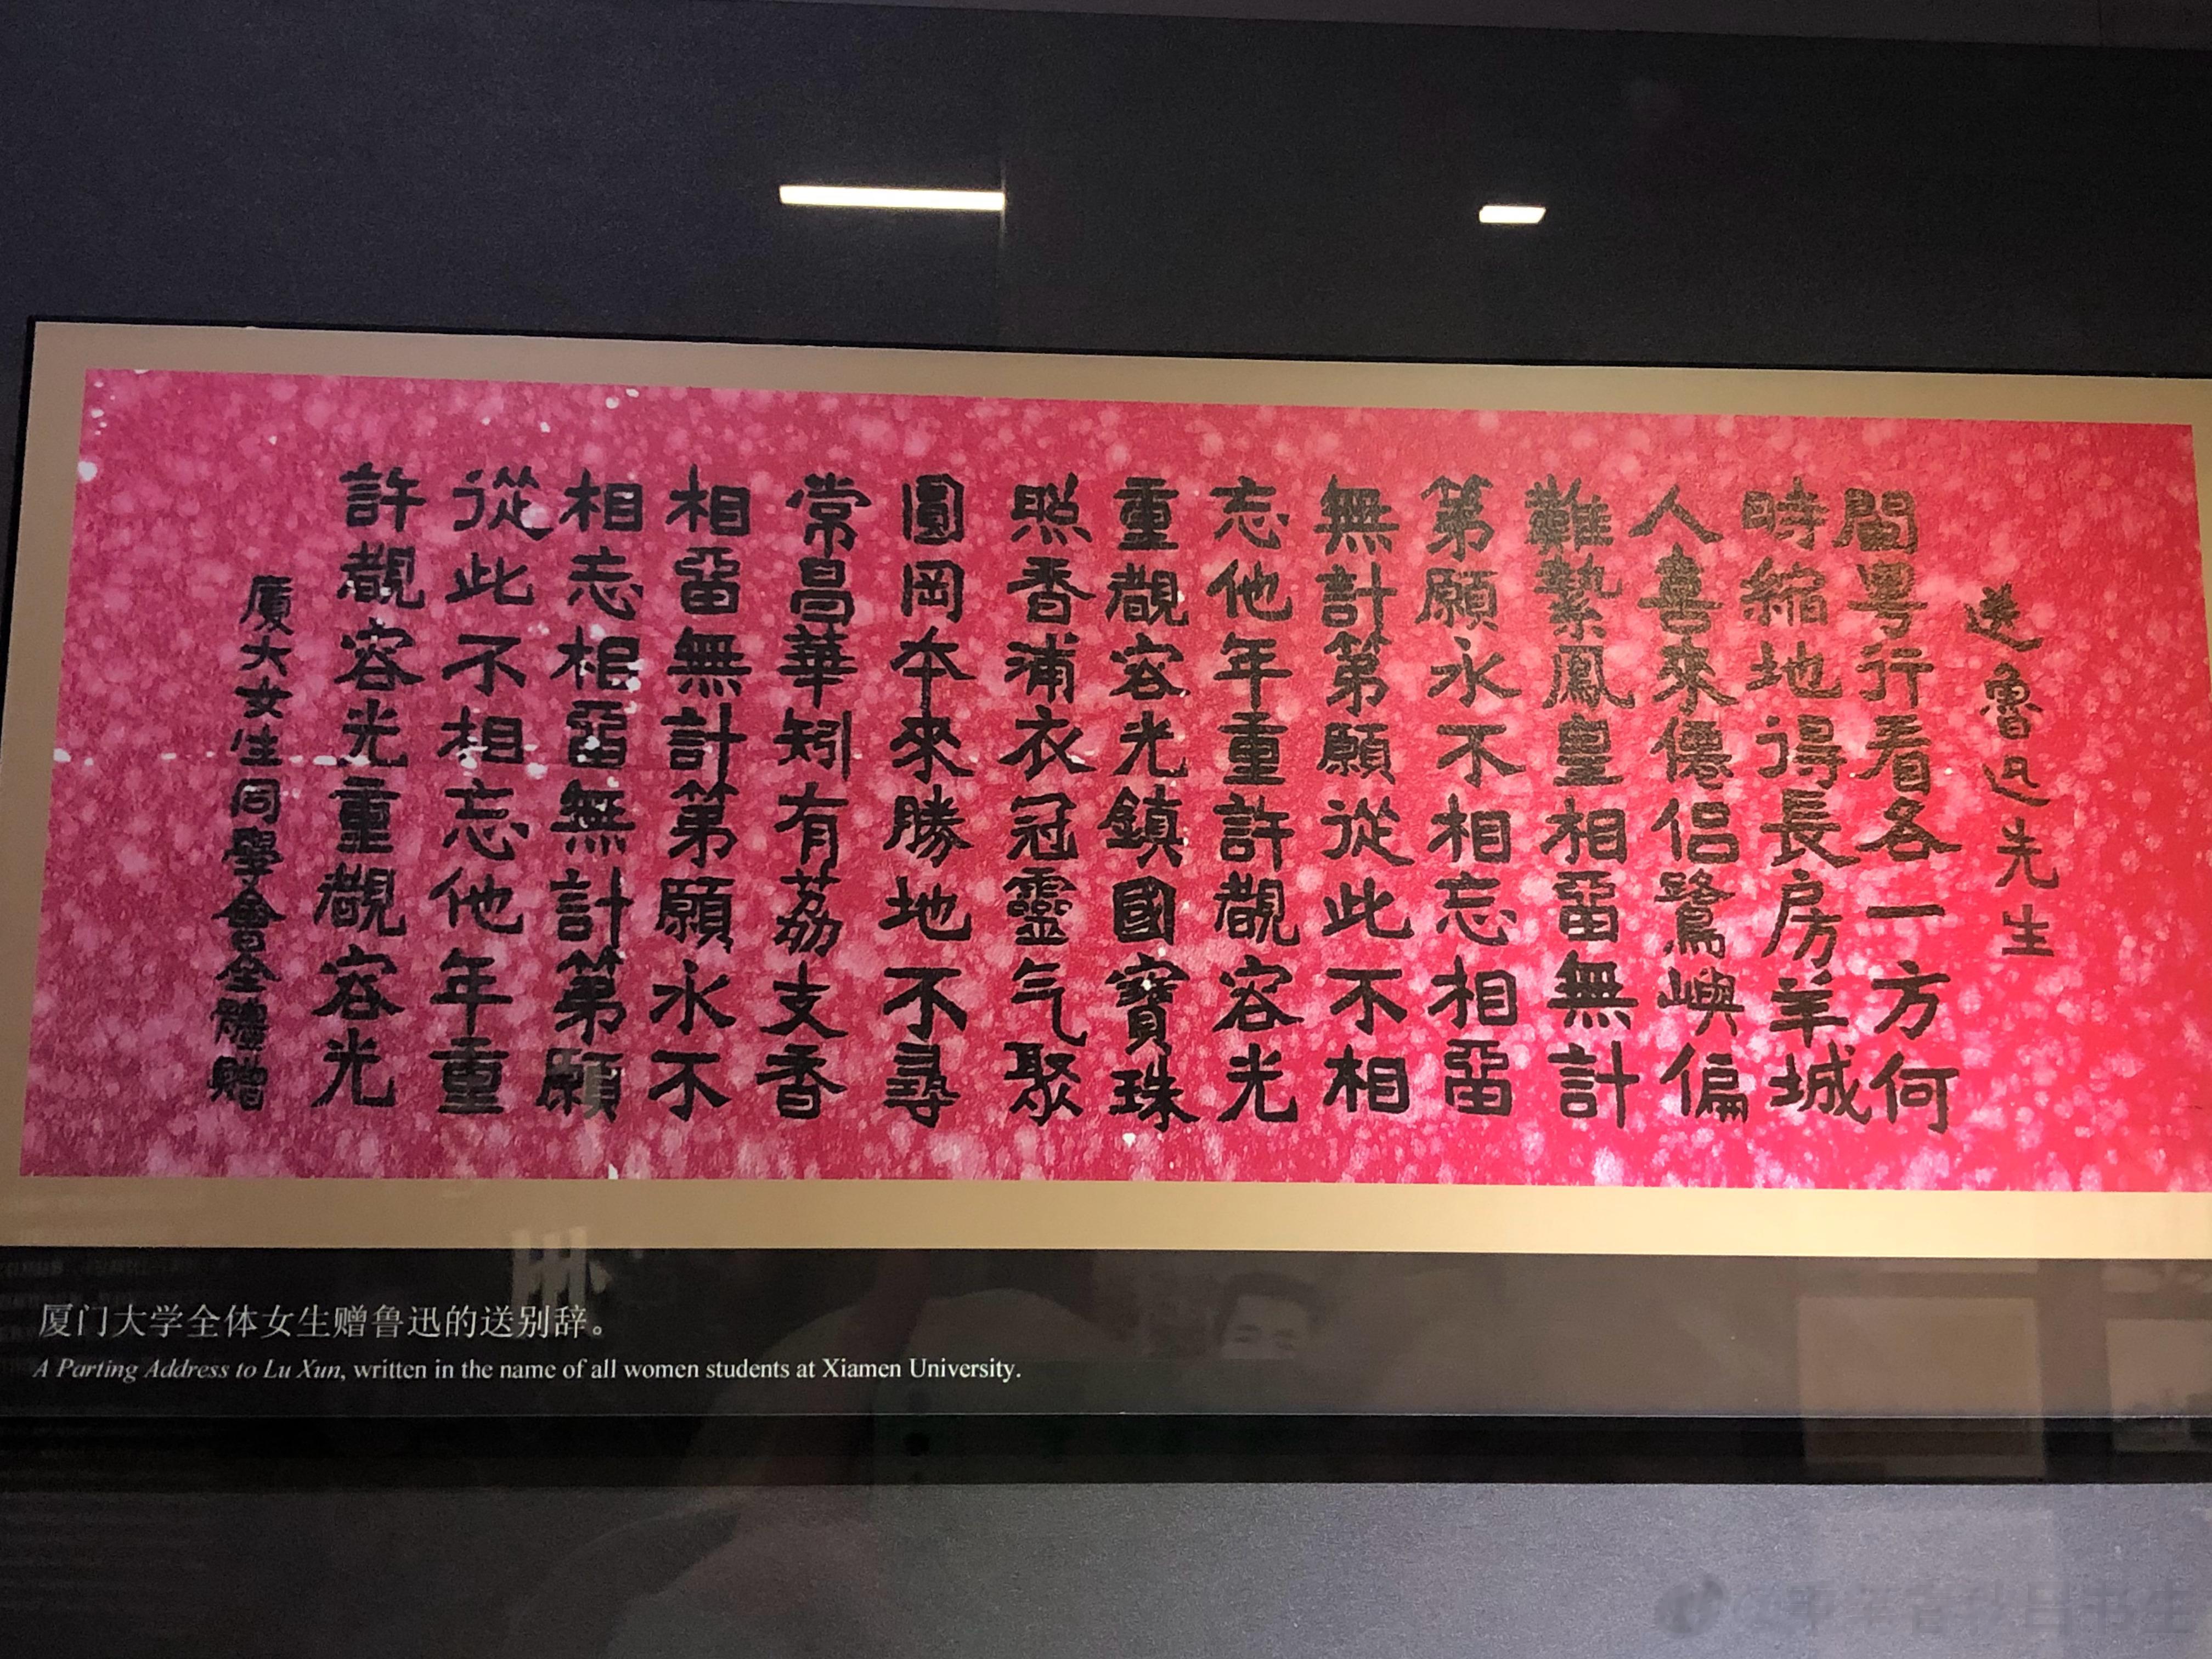 送魯迅先生
閩粵行看各一方何
時縮地得長房羊城
人喜來儔侣鷺嶼偏
難縶鳳皇相畱無計
第願永不相忘相畱
無計第願從此不相
忘他年重許觀容光
重觀容光鎮國寶珠
照香浦衣冠靈气聚
圓岡本來勝地不尋
常昌華矧有荔支香
相畱無計第願永不
相忘相畱無計第願
從此不相忘他年重
許觀容光重觀容光
厦大女生同學會全體贈
厦门大学全体女生赠鲁迅的送别辞。
A Parting Address to Lu Xun, written in the name of all women students at Xiamen University.